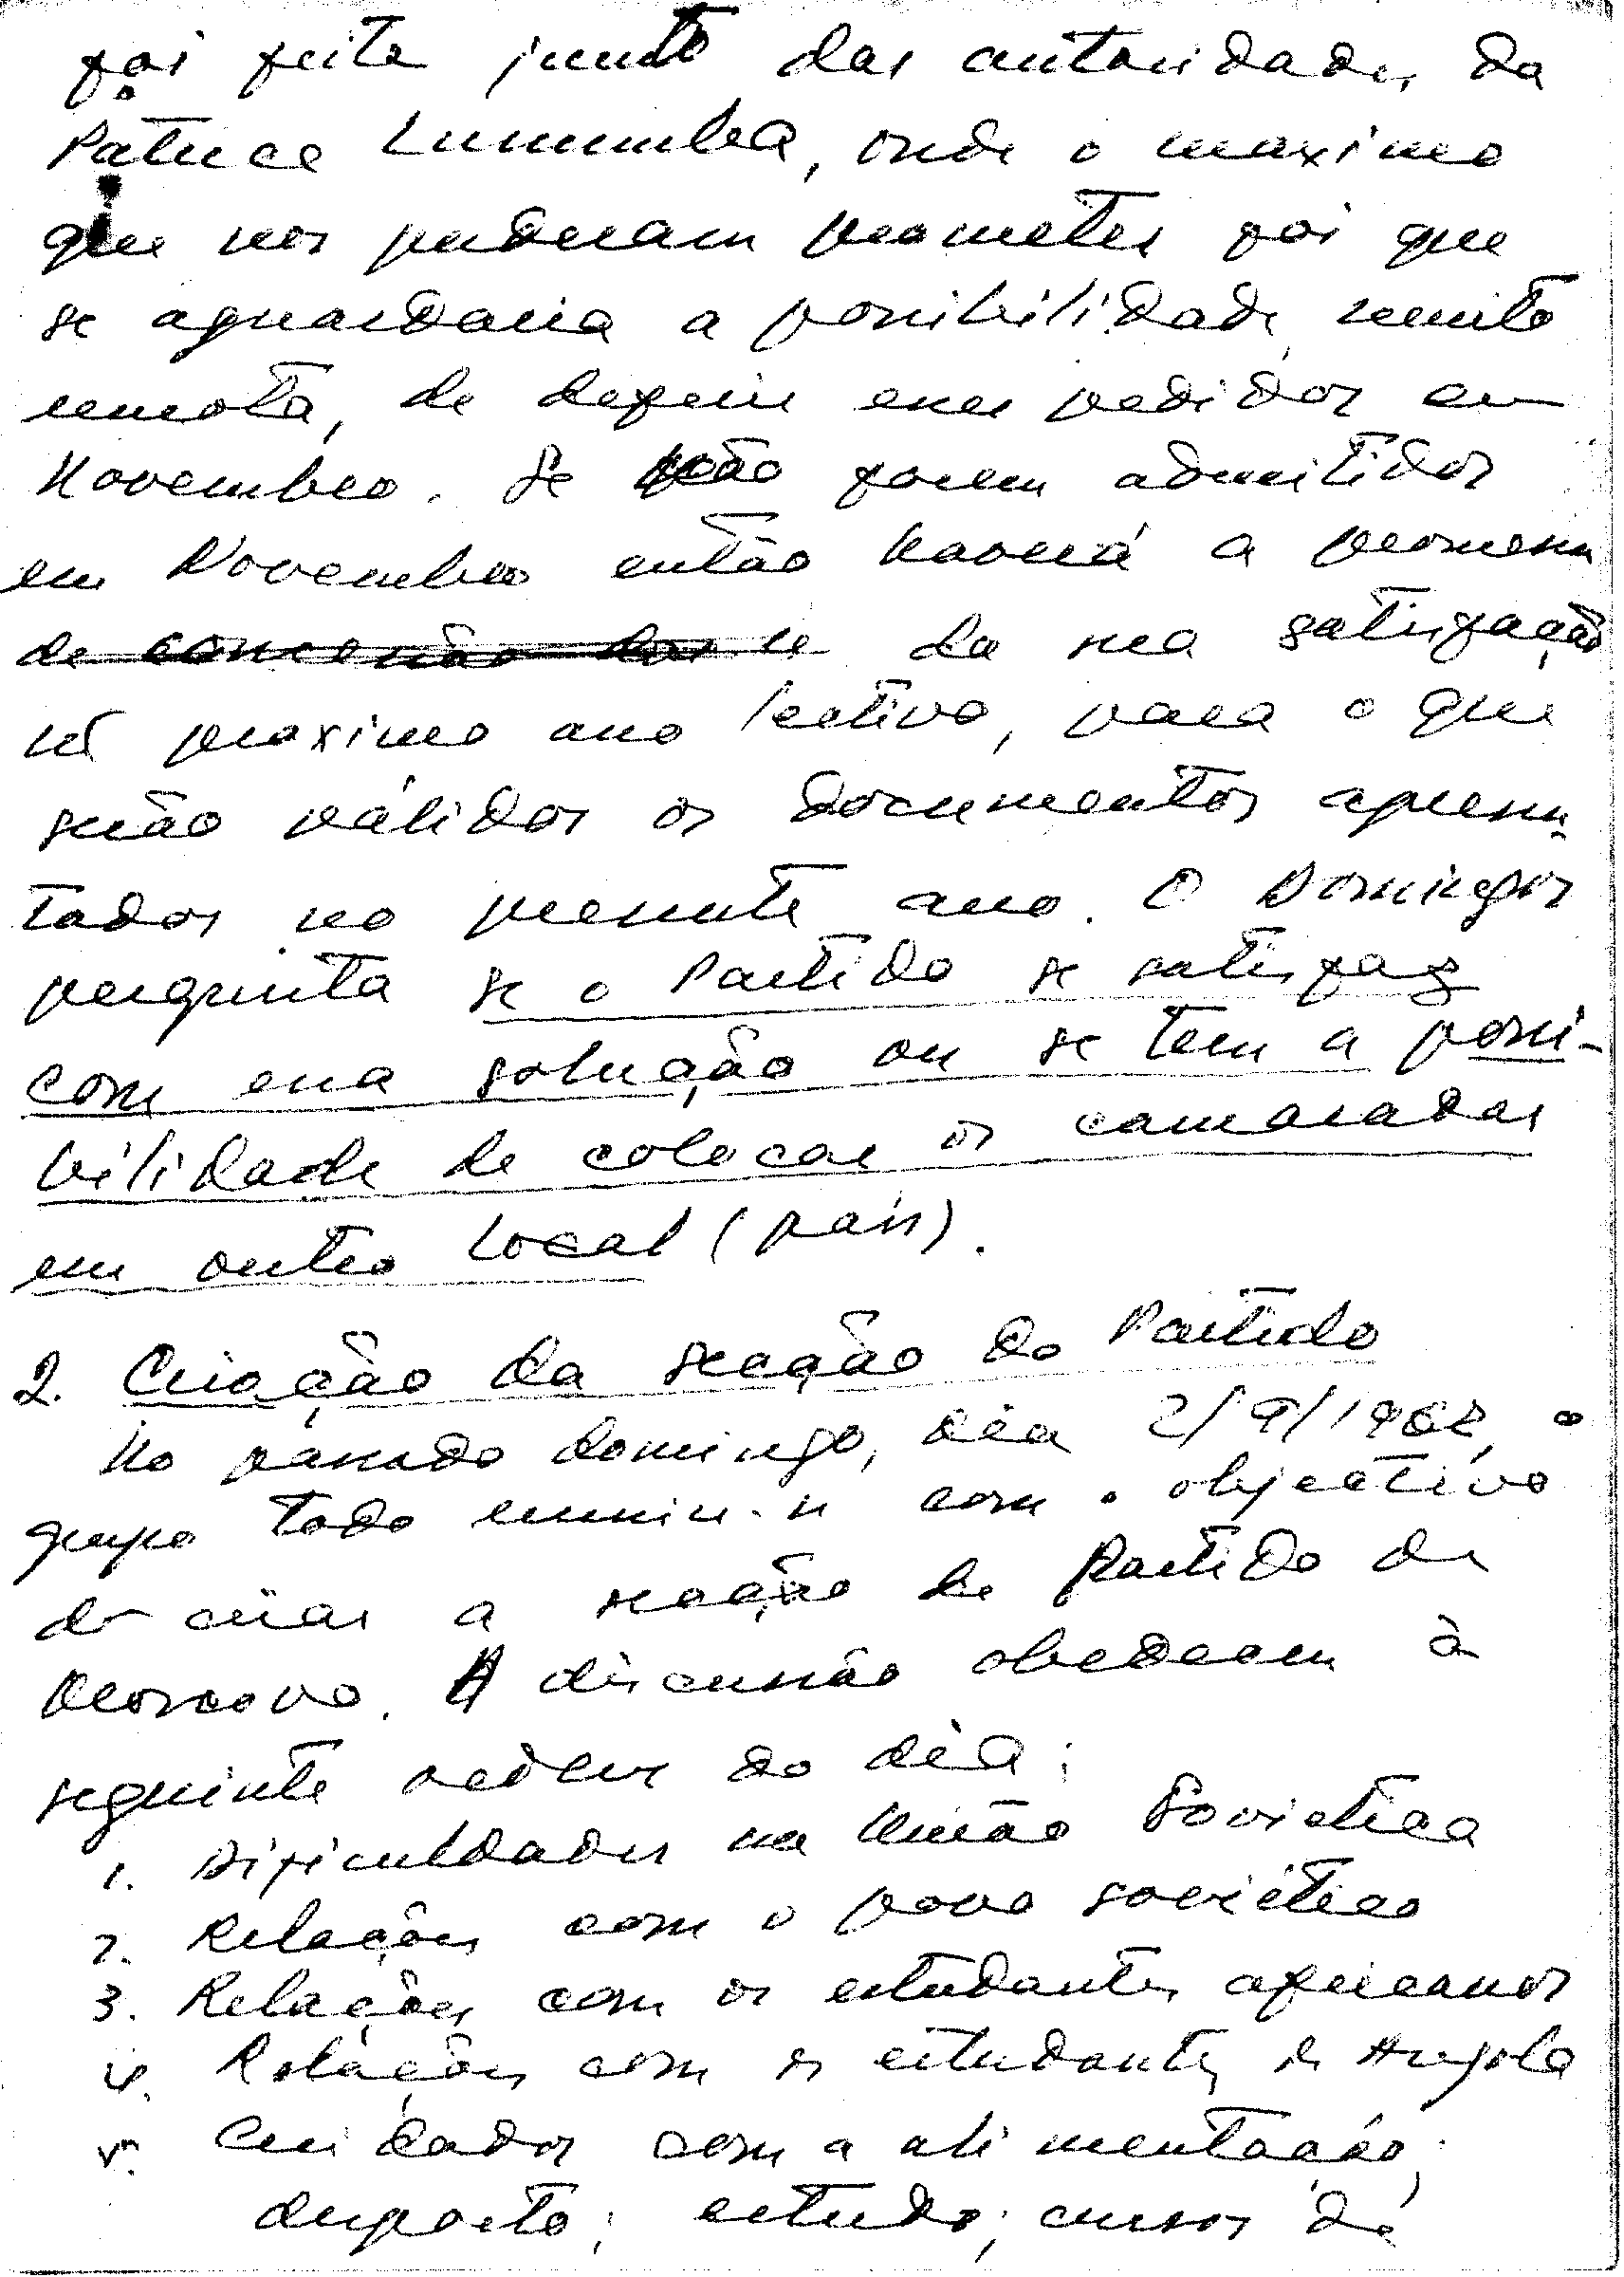 foi feita junto das autoridades da
Patrice Lumumba, onde o maximo
que nos puderam prometer foi que
se aguardaria a possibilidade, muito
remota, de deferir esses pedidos em
Novembro. Se não forem admitidos
em Novembro então haverá a promessa
de concessão das se da sua satisfação
no proximo ano lectivo, para o que
serão válidos os documentos apresen-
tados no presente ano. O Domingos
pergunta se o Partido se satisfaz
com essa solução ou se tem a possi-
bilidade de colocar os camaradas
em outro local (país).
2. Criação da secção do Partido
No passado domingo, dia 2/9/1962, o
grupo todo reuniu-se com o objectivo
de criar a secção do Partido de
Moscovo. A discussão obedeceu à
seguinte ordem do dia:
1. Dificuldades na União Sovietica
2. Relações com o povo soviético
3. Relações com os estudantes africanos
4. Relações com os estudantes de Angola
5. Cuidados com a alimentação;
desporto; estudo; cursos de